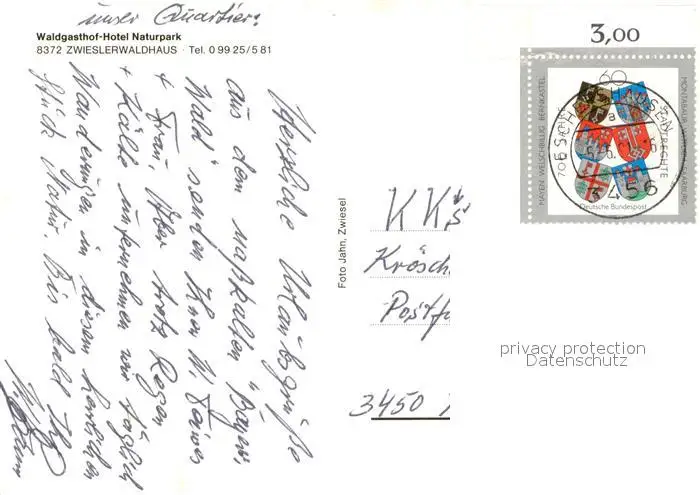 unser Quartier!
Waldgasthof-Hotel Naturpark
8372 ZWIESLERWALDHAUS · Tel. 0 99 25/5 81
Herzliche Urlaubsgrüße
aus dem naßkalten "Bayer.
Wald" senden Ihnen
+ Frau. Aber trotz Regen
+ Kälte unternehmen wir täglich
Wanderungen in diesem herrlichen
Stück Natur. Bis bald Ihr
Foto Jahn, Zwiesel
KKS
Krösch
Postfa
3450
3,00
60
MAYEN WELSCHBILLIG BERNKASTEL
MONTABAUR SAARBURG
STADTRECHTE
Deutsche Bundespost
3456
privacy protection
Datenschutz